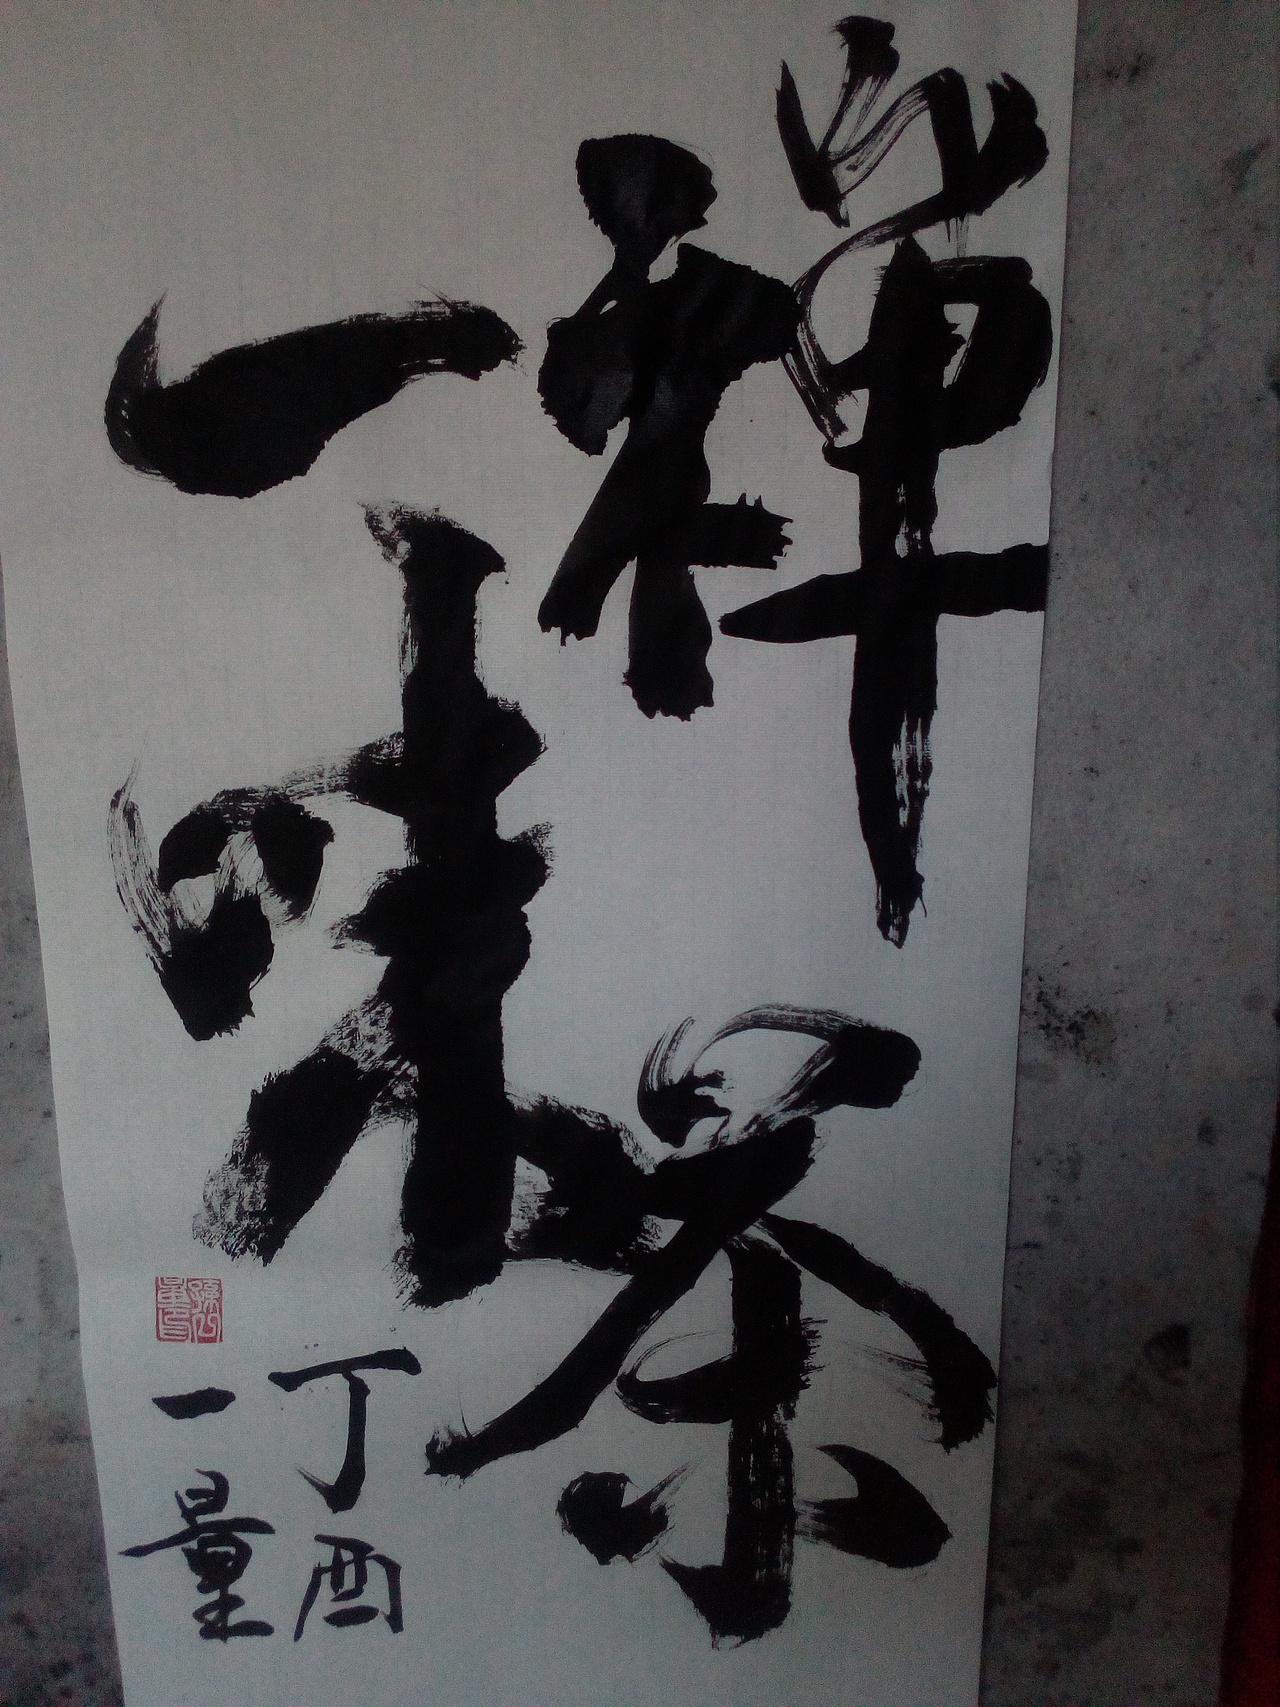 禪茶
一味
丁酉
一量